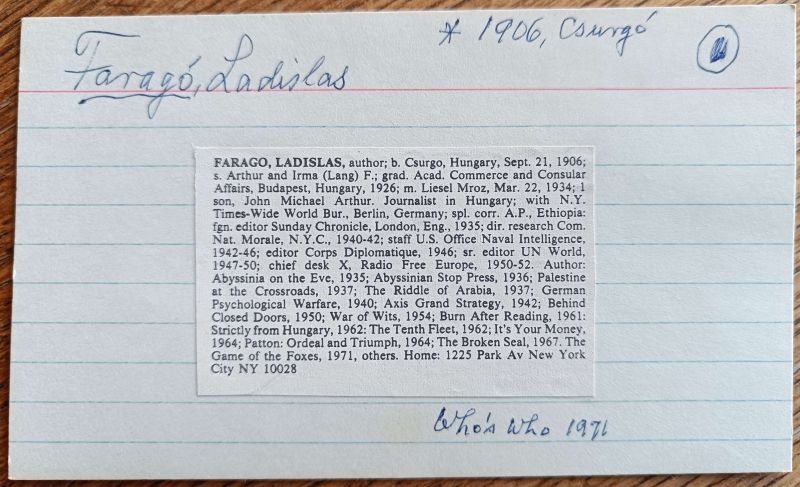 * 1906, Csurgó
Faragó, Ladislas
FARAGO, LADISLAS, author; b. Csurgo, Hungary, Sept. 21, 1906;
s. Arthur and Irma (Lang) F.; grad. Acad. Commerce and Consular
Affairs, Budapest, Hungary, 1926; m. Liesel Mroz, Mar. 22, 1934; 1
son, John Michael Arthur. Journalist in Hungary; with N.Y.
Times-Wide World Bur., Berlin, Germany; spl. corr. A.P., Ethiopia:
fgn. editor Sunday Chronicle, London, Eng., 1935; dir. research Com.
Nat. Morale, N.Y.C., 1940-42; staff U.S. Office Naval Intelligence,
1942-46; editor Corps Diplomatique, 1946; sr. editor UN World,
1947-50; chief desk X, Radio Free Europe, 1950-52. Author:
Abyssinia on the Eve, 1935; Abyssinian Stop Press, 1936; Palestine
at the Crossroads, 1937; The Riddle of Arabia, 1937; German
Psychological Warfare, 1940; Axis Grand Strategy, 1942; Behind
Closed Doors, 1950; War of Wits, 1954; Burn After Reading, 1961:
Strictly from Hungary, 1962: The Tenth Fleet, 1962; It's Your Money,
1964; Patton: Ordeal and Triumph, 1964; The Broken Seal, 1967. The
Game of the Foxes, 1971, others. Home: 1225 Park Av New York
City NY 10028
Who's Who 1971